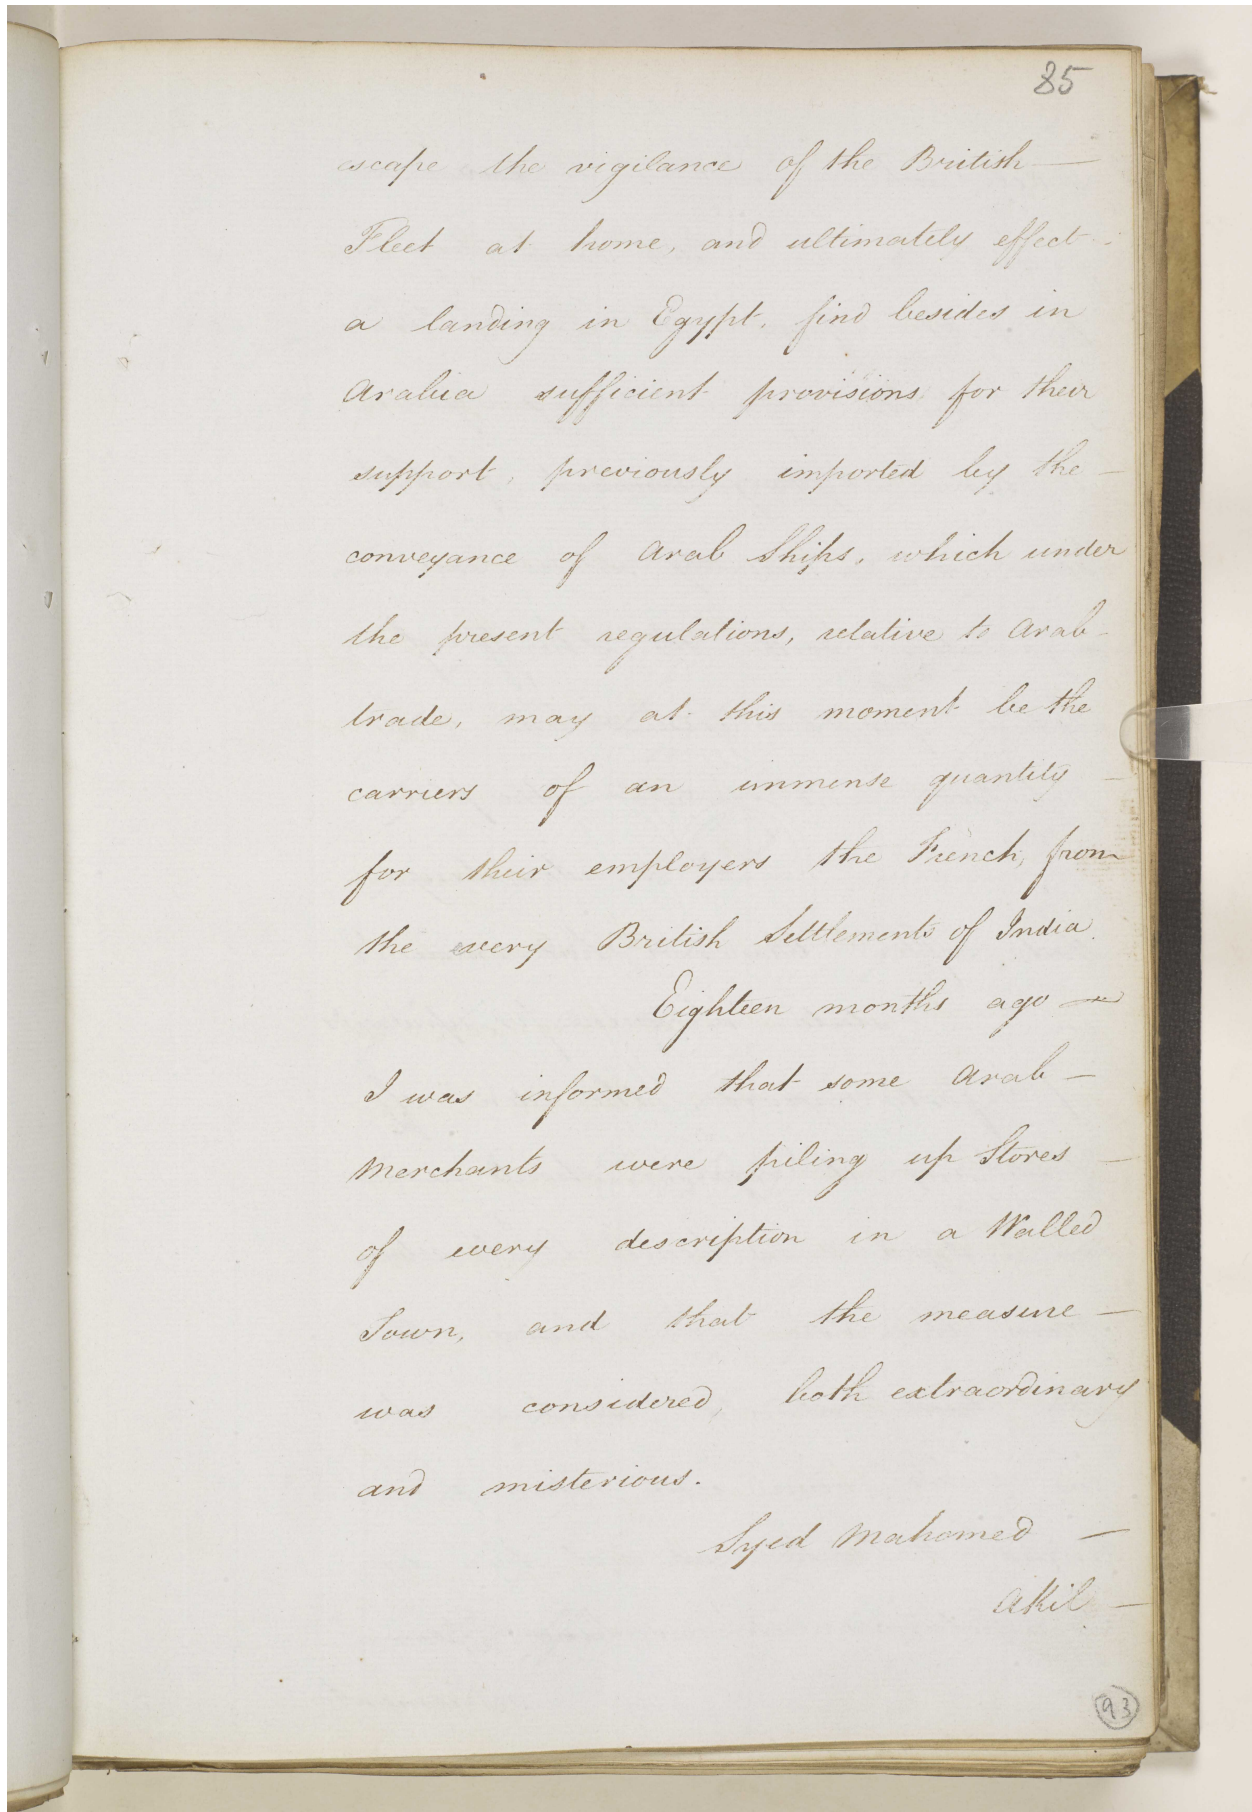 85
escape the vigilance of the British —
Fleet at home, and ultimately effect -
a landing in Egypt, find besides in
Arabia sufficient provisions for their
support, previously imported by the —
conveyance of Arab Ships, which under
the present regulations, relative to Arab -
trade, may at this moment be the
carriers of an immense quantity —
for their employers the French, from
the every British Settlements of India.
Eighteen months ago —
I was informed that some Arab —
Merchants were piling up Stores —
of every description in a Walled
Town, and that the measure —
was considered, both extraordinary
and misterious.
Syed Mahomed —
Akil —
93